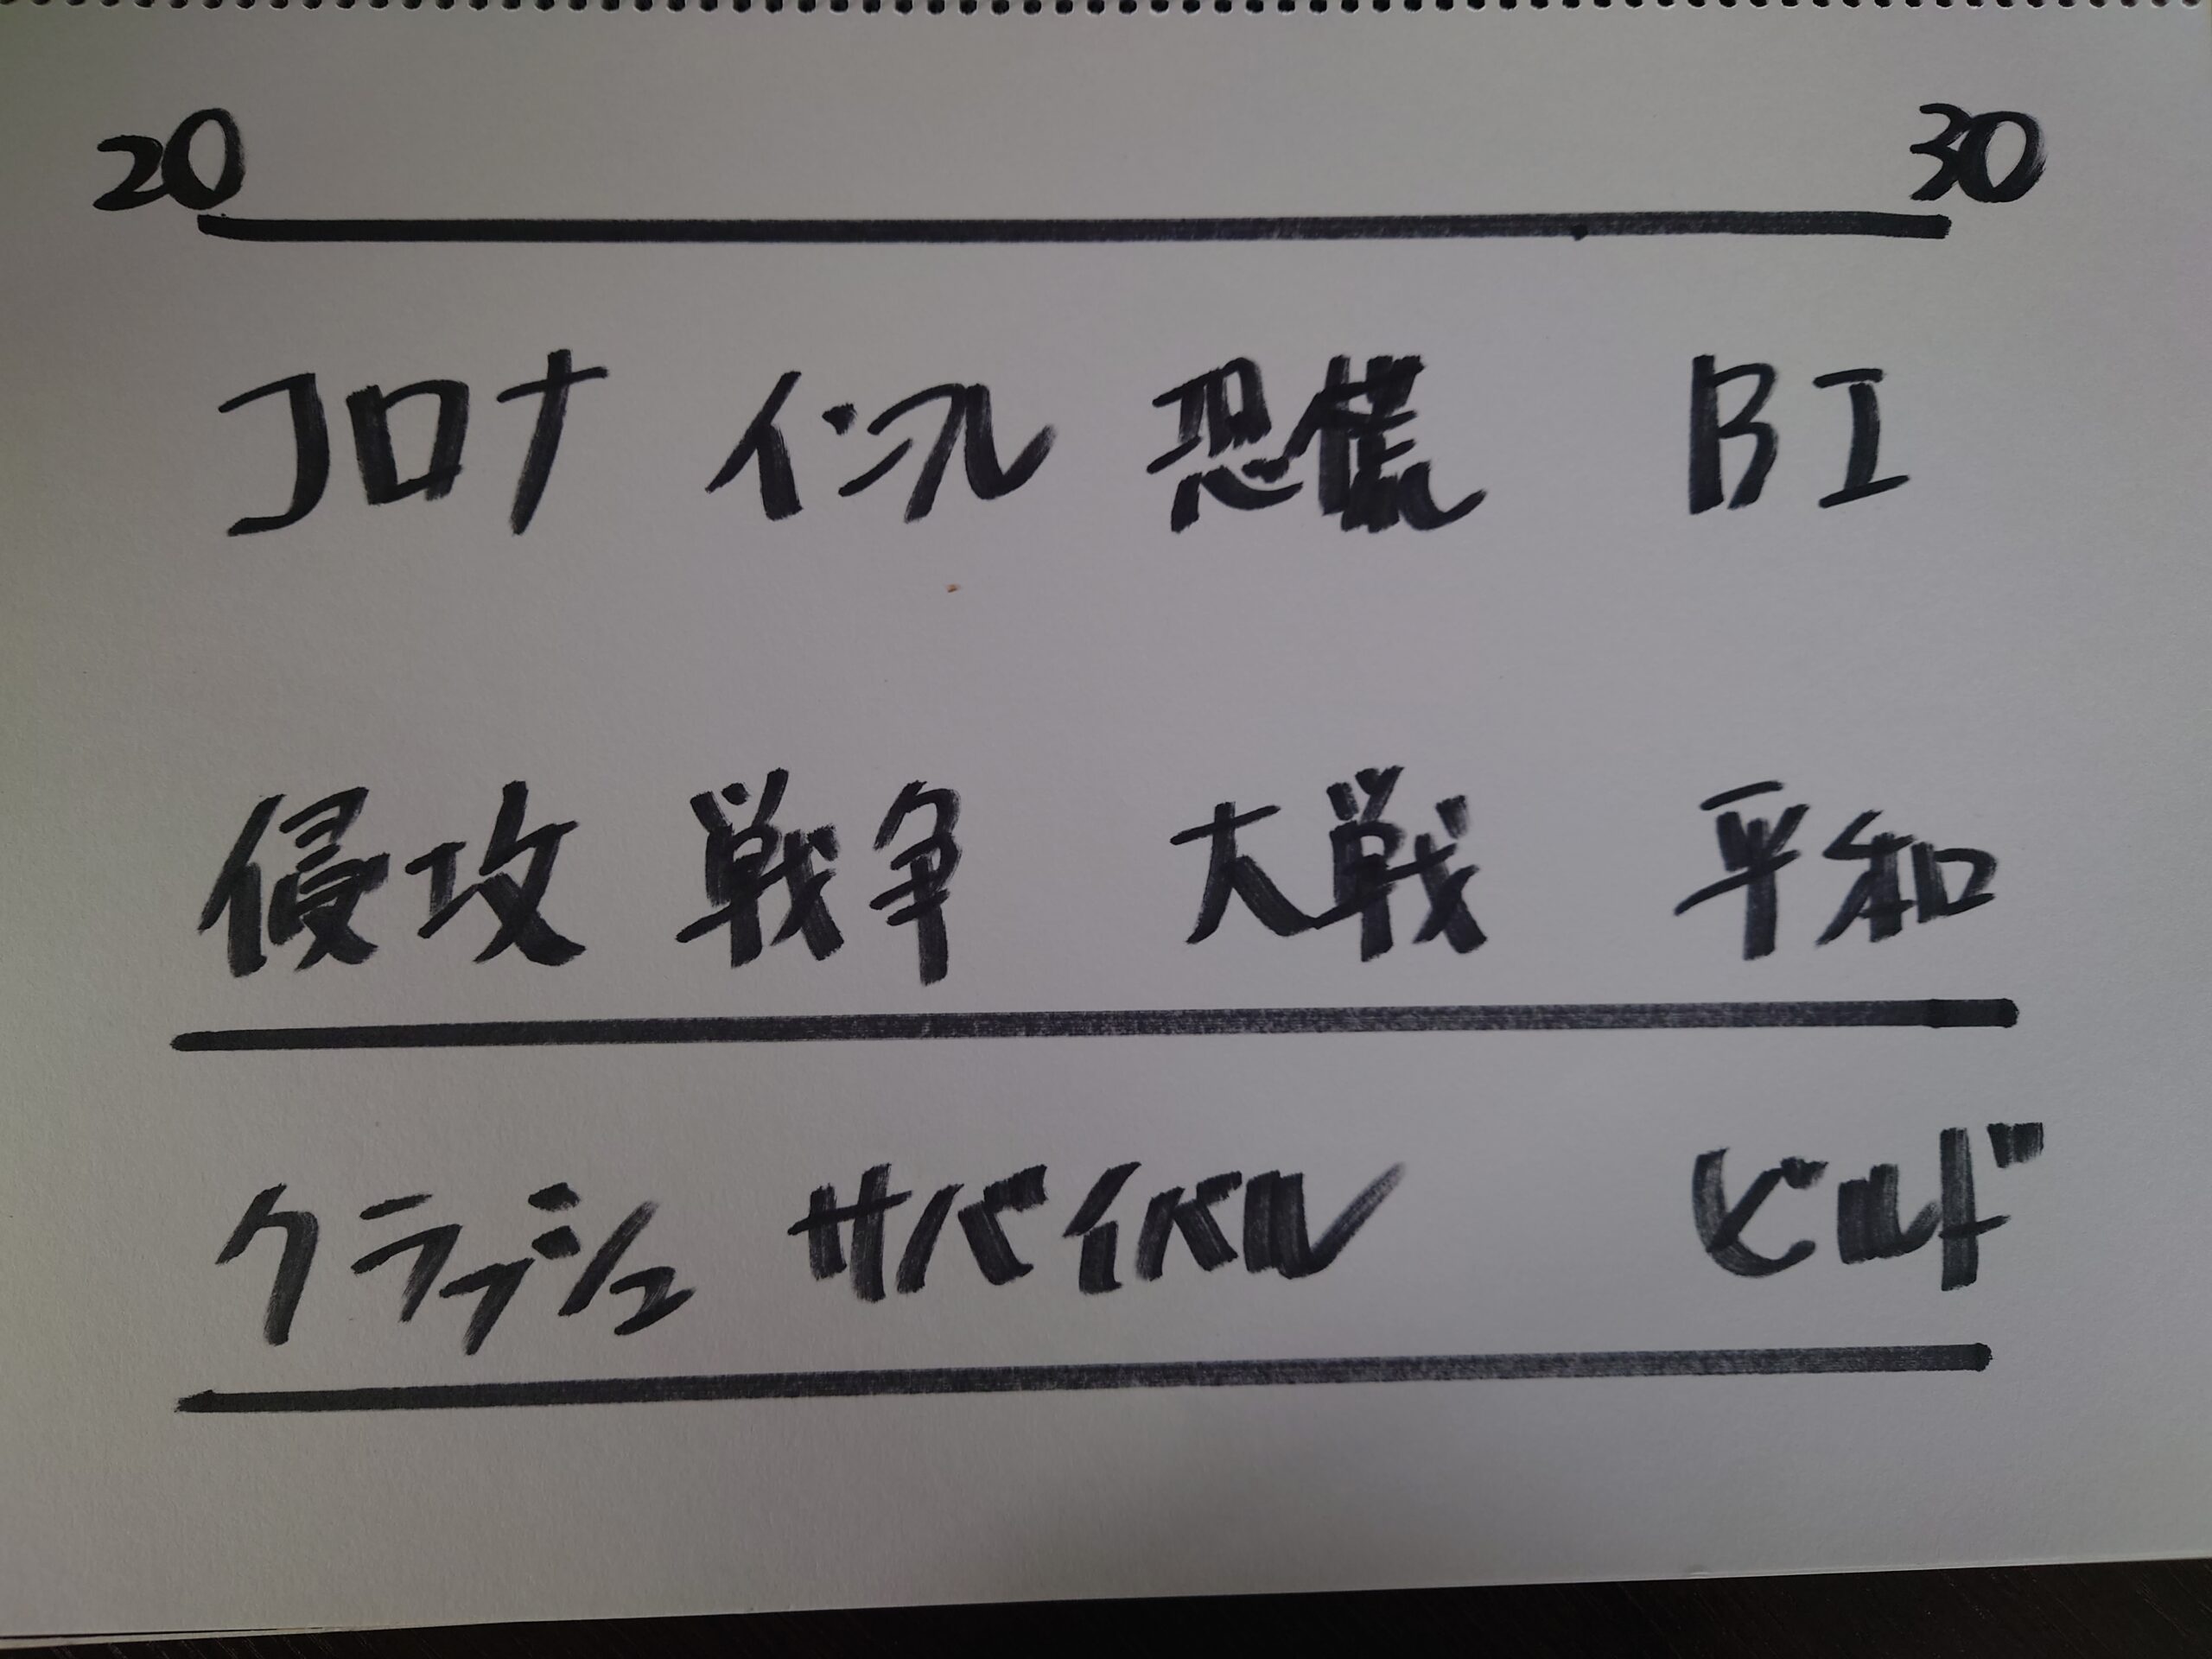 20 30
コロナ インフレ 恐慌 BI
侵攻 戦争 大戦 平和
クラッシュ サバイバル ビルド